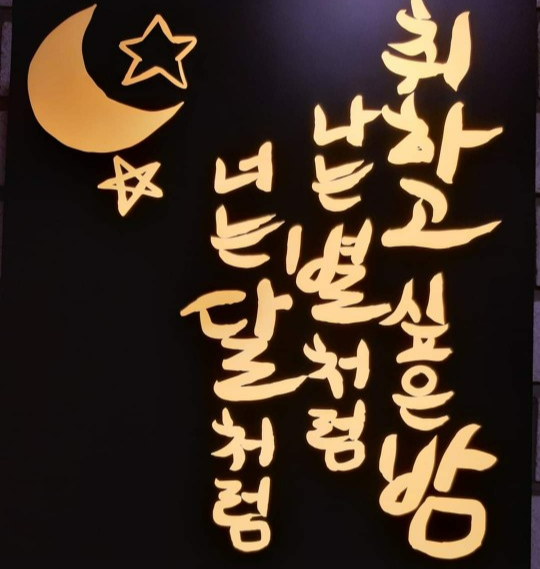 취하고 싶은 밤
나는 별처럼
너는 달처럼